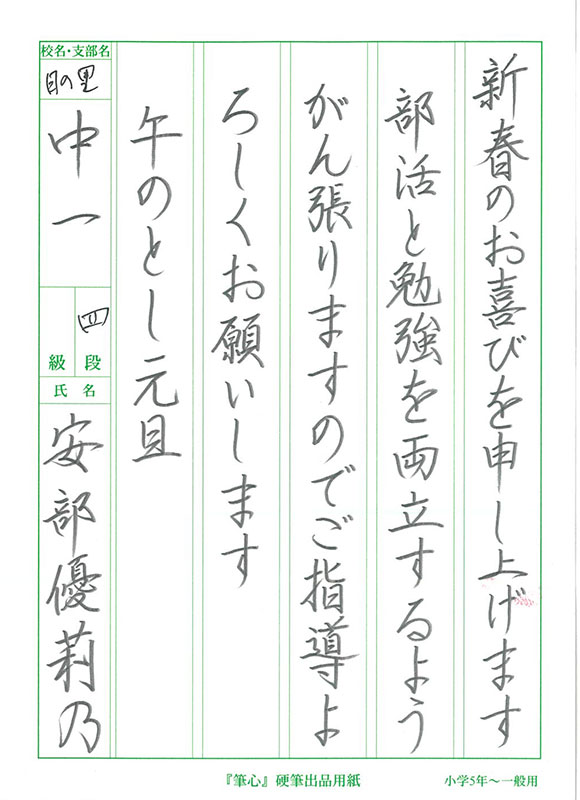 新春のお喜びを申し上げます
部活と勉強を両立するよう
がん張りますのでご指導よ
ろしくお願いします
午のとし元旦
校名・支部名
日の里
中一
四
段
級
氏名
安部優莉乃
『筆心』硬筆出品用紙
小学5年〜一般用